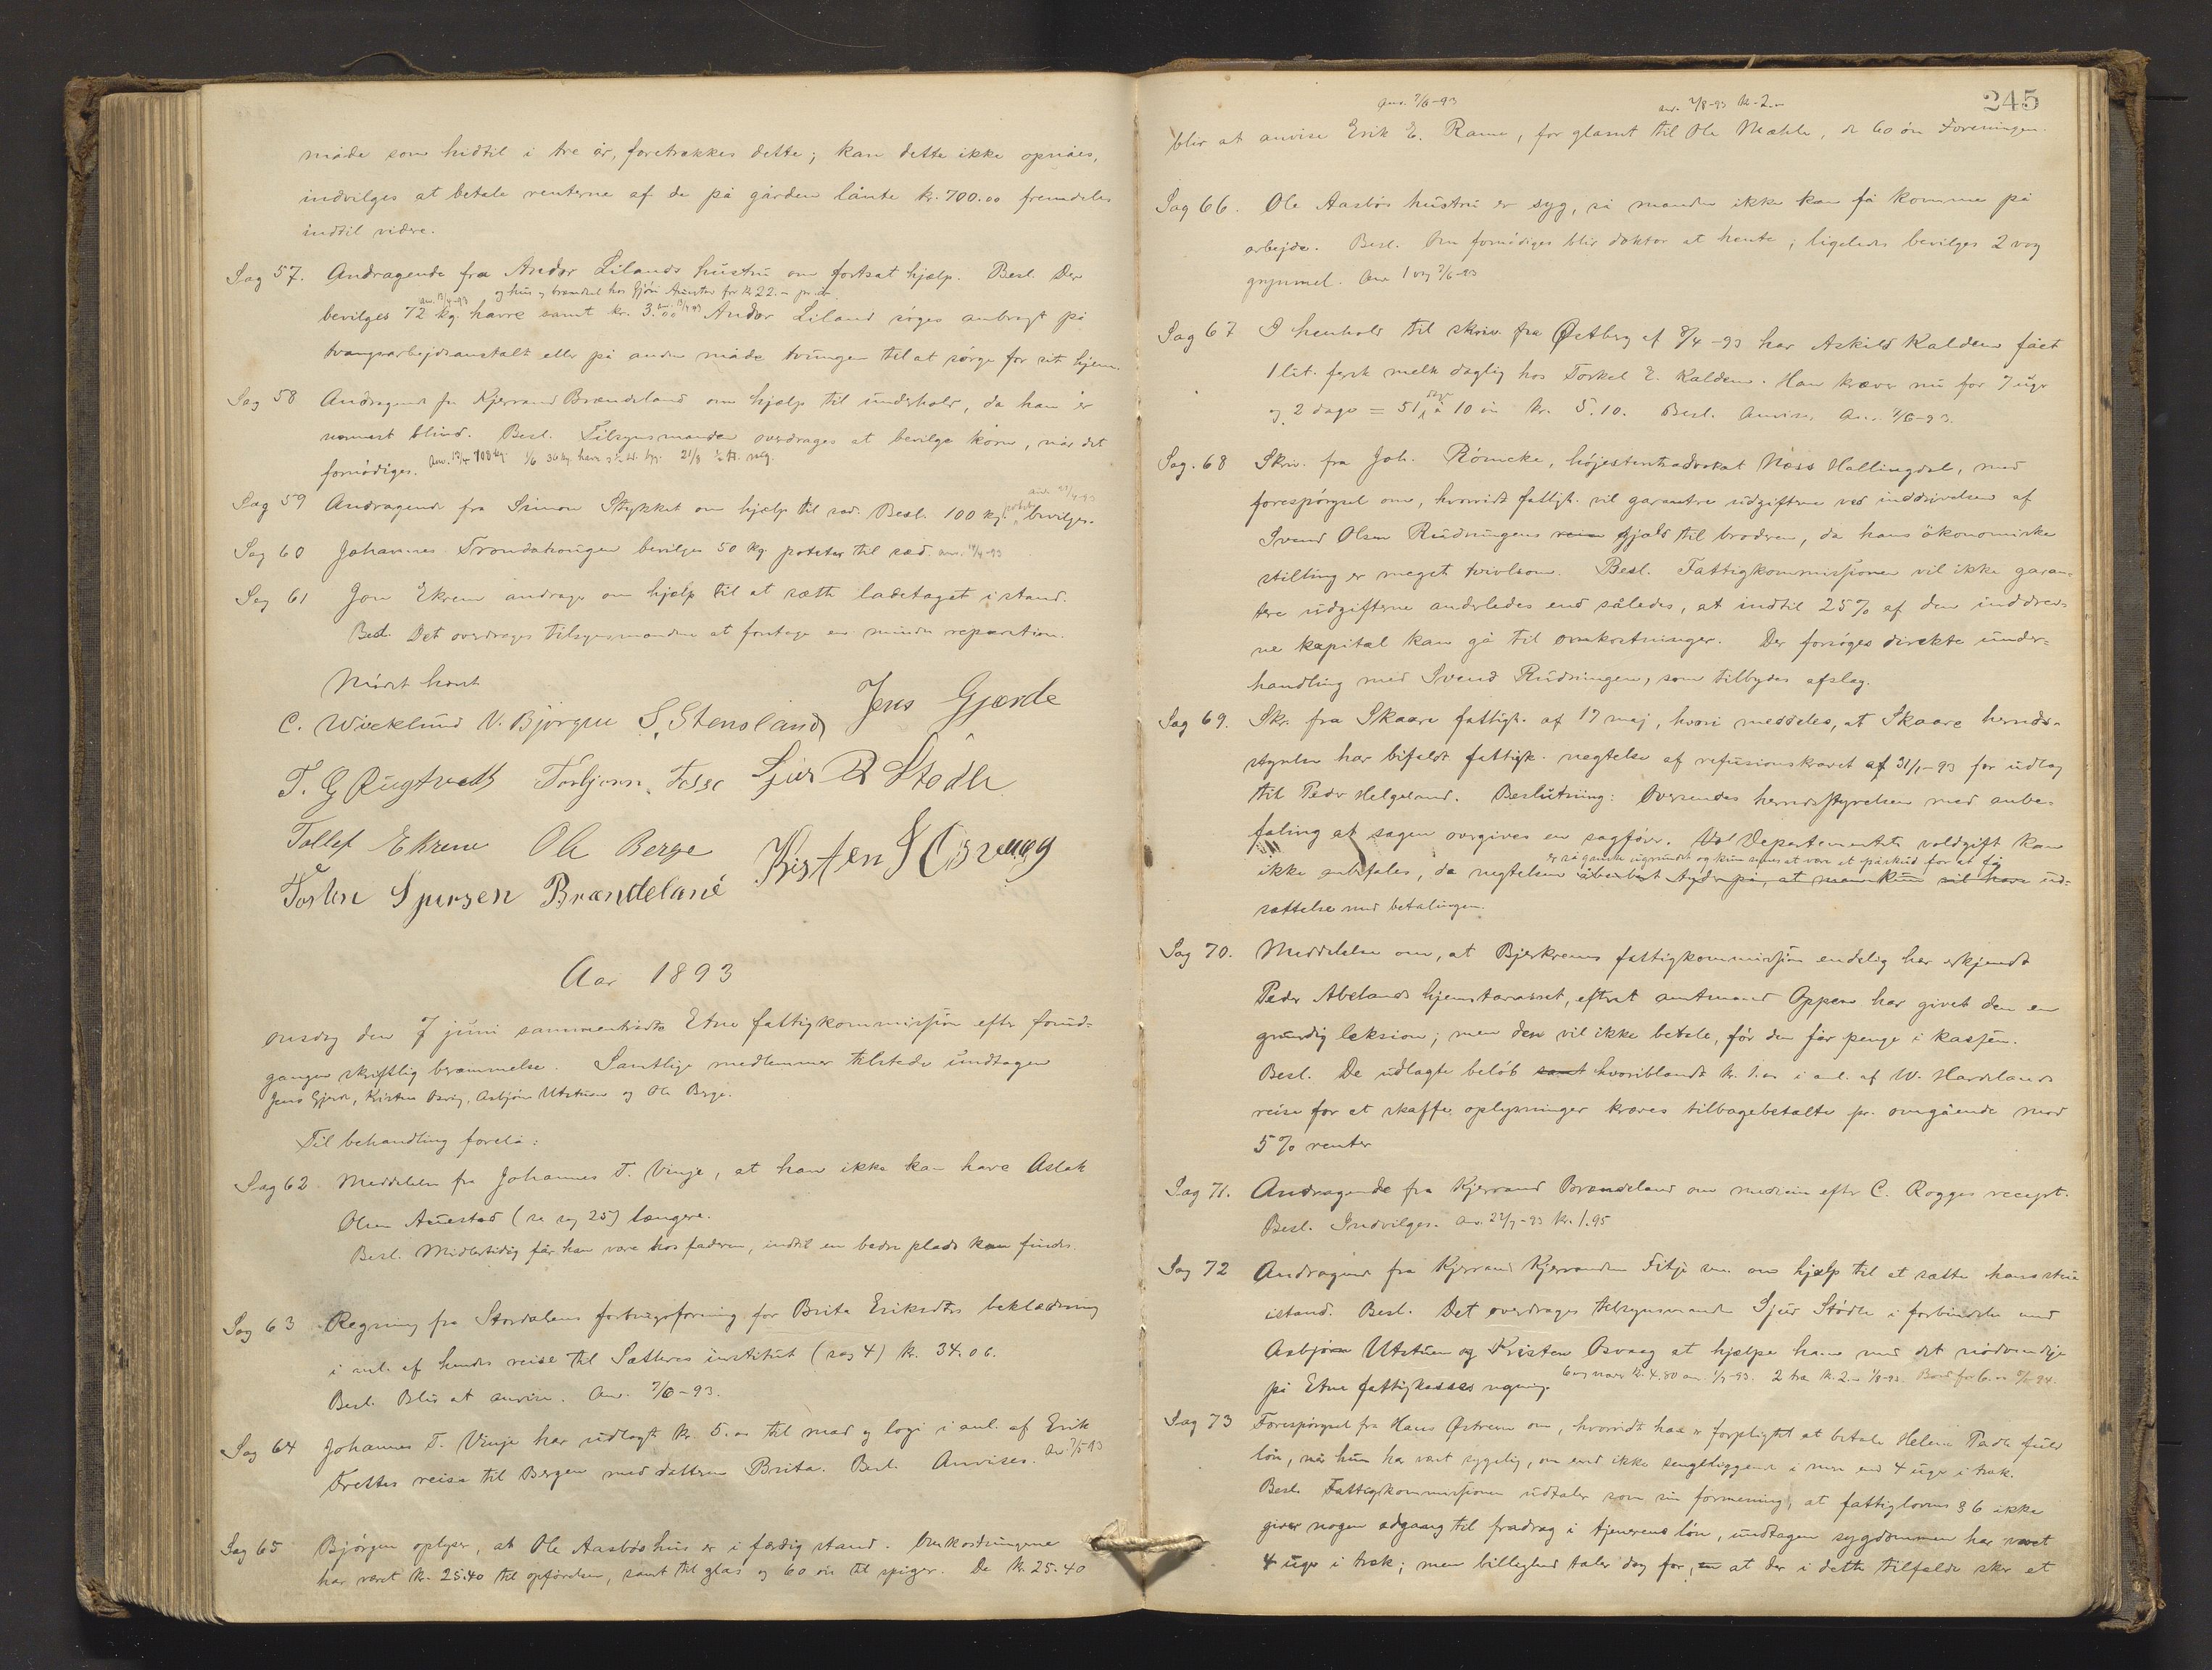 måde som hidtil i tre år, foretrækkes dette; kan dette ikke opnåes,
indvilges at betale renterne af de på gården lånte kr. 700.00 fremdeles
indtil videre.
Sag 57. Andragende fra Andor Lilands hustru om fortsat hjælp. Besl. Der
anv. 13/4-93 og hus og brændsel hos Gjøri for kr 22.- pr. år
bevilges 72 kg. havre samt kr. 3.00 Andor Liland søges anbragt på
tvangsarbejdsanstalt eller på anden måde tvungen til at sørge for sit hjem.
Sag 58 Andragende fra Kjerrand Brændeland om hjælp til underhold, da han er
nærmest blind. Besl. Tilsynsmanden overdrages at bevilge korn, når det
fornødiges. Anv. 13/4 108 kg. 1/6 36 kg. havre
Sag 59 Andragende fra Simon Stykket om hjælp til sæd. Besl. 100 kg. poteter bevilges.
Sag 60 Johannes Trondahougen bevilges 50 kg. poteter til sæd. anv. 19/4-93
Sag 61 Jon Ekrem andrager om hjælp til at sætte ladetaget i stand.
Besl. Det overdrages tilsynsmanden at foretage en mindre reparation.
Mødet hævt
C. Wicklund V. Bjørgen S. Stensland Jens Gjerde
T. G. Rugtvedt Torbjørn Fosse Sjur R Stødle
Tollef Ekrene Ole Berge Kristen S Osvaag
Torsten Sjursen Brændeland
Aar 1893
onsdag den 7 juni sammentrådte Etne fattigkommissjon efter forud-
gangen skriftlig berammelse. Samtlige medlemmer tilstede undtagen
Jens Gjerde, Kristen Osvåg, Asbjørn Utstuen og Ole Berge.
Til behandling forelå:
Sag 62 Meddelelse fra Johannes T. Vinje, at han ikke kan have Aslak
Olsen Auestad (se sag 25) længere.
Besl. Midlertidig får han være hos faderen, indtil en bedre plads kan findes.
Sag 63 Regning fra Stordalens forbrugsforening for Brita Eriksdtrs beklædning
i anl. af hendes reise til Sæthres institut (sag 4) kr. 34.06.
Besl. Blir at anvise. Anv. 7/6-93.
Sag 64 Johannes T. Vinje har udlagt kr. 5.00 til mad og logi i anl. af Erik
Frettes reise til Bergen med datteren Brita. Besl. Anvises. Anv. 7/6-93
Sag 65 Bjørgen oplyser, at Ole Aasbøs hus er i færdig stand. Omkostningerne
har været kr. 25.40 til opførelsen, samt til glas og 60 øre til spiger. De kr. 25.40
245
anv. 7/6-93 anv. 7/8-93 kr. 2.-
blir at anvise Erik E. Rame, for glasset til Ole Mæhle, de 60 øre Foreningen.
Sag 66. Ole Aasbøs hustru er syg, så manden ikke kan få komme på
arbejde. Besl. Om fornødiges blir doktor at hente; ligeledes bevilges 2 vog
grynmel. Anv 1 vog 7/6-93
Sag 67 I henhold til skriv. fra Østberg af 8/4-93 har Askild Kaldem fået
1 lit. fersk melk daglig hos Torkel E. Kaldem. Han kræver nu for 7 uger
og 2 dage = 51 dage à 10 øre kr. 5.10. Besl. Anvises. Anv. 7/6-93.
Sag. 68 Skriv. fra Joh. Rømcke, højesteretsadvokat Næss Hallingdal, med
forespørgsel om, hvorvidt fattigk. vil garantere udgifterne ved inddrivelsen af
Svend Olsen Rudningens gjæld til broderen, da hans økonomiske
stilling er meget tvivlsom. Besl. Fattigkommissjonen vil ikke garan-
tere udgifterne anderledes end således, at indtil 25% af den inddrev-
ne kapital kan gå til omkostninger. Der forsøges direkte under-
handling med Svend Rudningen, som tilbydes afslag.
Sag 69. Skr. fra Skaare fattigk. af 17 maj, hvori meddeles, at Skaare herreds-
styrelse har bifaldt fattigk. negtelse af refusionskravet af 31/1-93 for udlæg
til Peder Helgeland. Beslutning: Oversendes herredsstyrelsen med anbe-
faling at sagen overgives en sagfører. Ved Departementets voldgift kan
er så ganske ugrundet og kun synes at være et påskud for at få
ikke anbefales, da negtelsen åbenbart tyder på, at man kun vil have ud-
sættelse med betalingen.
Sag 70. Meddelelse om, at Bjerkrems fattigkommissjon endelig har erkjendt
Peder Abelands hjemstavnsret, efterat amtmand Oppen har givet den en
grundig leksion; men den vil ikke betale, før den får penge i kassen.
Besl. De udlagte beløb samt hvoriblandt kr. 1.00 i anl. af W. Hardelands
reise for at skaffe oplysninger kræves tilbagebetalte pr. omgående med
5% renter
Sag 71. Andragende fra Kjerrand Brændeland om medicin efter C. Rogges recept.
Besl. Indvilges. Anv. 22/7-93 kr. 1.95
Sag 72 Andragende fra Kjerrand Kjerrandsen Fitje om hjælp til at sætte hans stue
istand. Besl. Det overdrages tilsynsmanden Sjur Stødle i forbindelse med
Asbjørn Utstuen og Kristen Osvaag at hjælpe ham med det nødvendige
på Etne fattigkasses regning.
Sag 73 Forespørgsel fra Hans Østrem om, hvorvidt han er forpligtet at betale Helene Tadle fuld
løn, når hun har vært sygelig, om end ikke sengeliggende i mere end 4 uger i træk.
Besl. Fattigkommissjonen udtaler som sin formening, at fattiglovens § 6 ikke
giver nogen adgang til fradrag i tjenerens løn, undtagen sygdommen har været
4 uger i træk; men billighed taler dog for, at der i dette tilfælde sker et